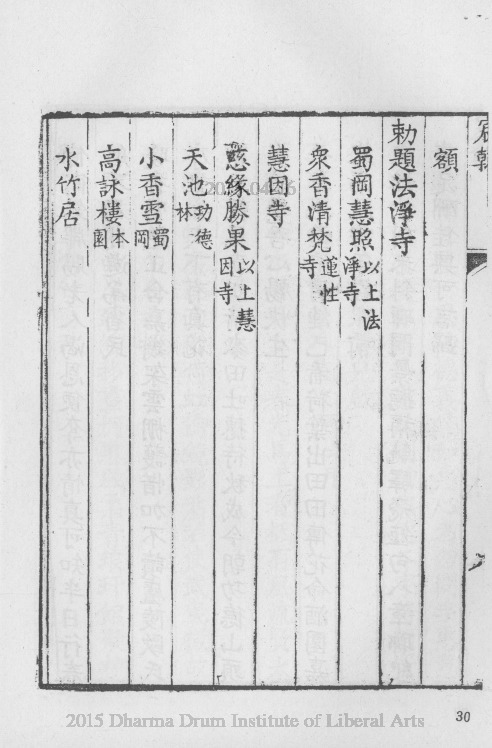 額
勅題法淨寺
蜀岡慧照以上法淨寺
衆香清梵蓮性寺
慧因寺
慈緣勝果以上慧因寺
天池功德林
小香雪蜀岡
高詠樓本園
水竹居
2015 Dharma Drum Institute of Liberal Arts
30